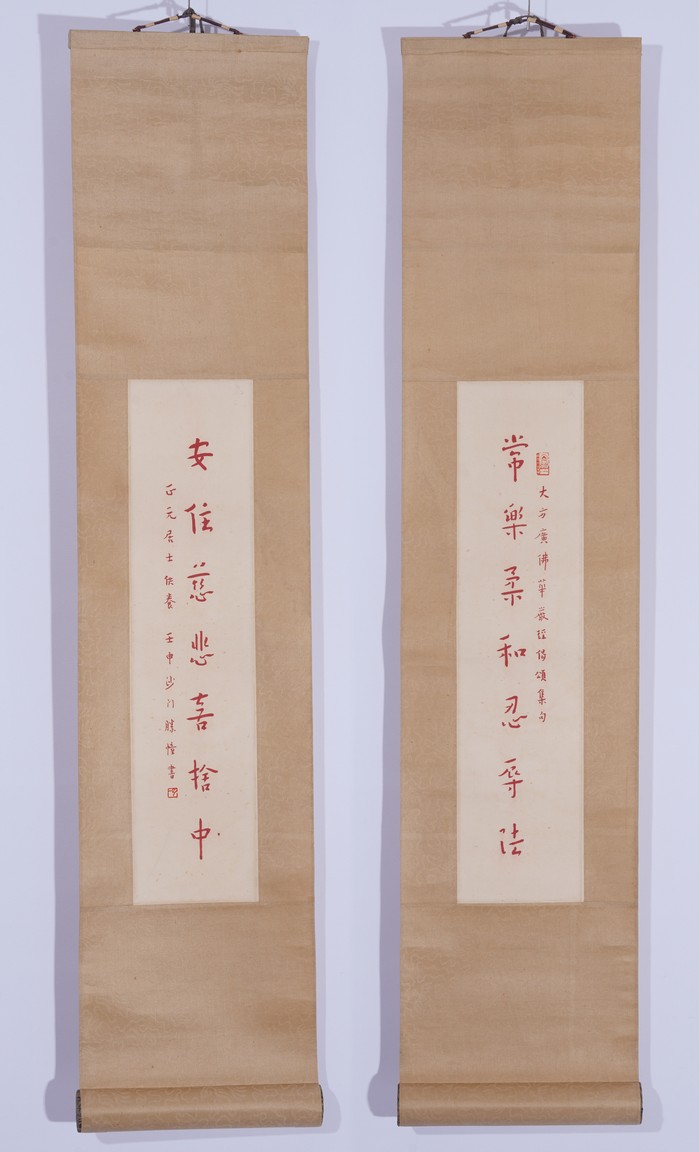 大方廣佛華嚴經偈頌集句
常樂柔和忍辱法
安住慈悲喜捨中
正元居士供養 壬申沙門勝幢書